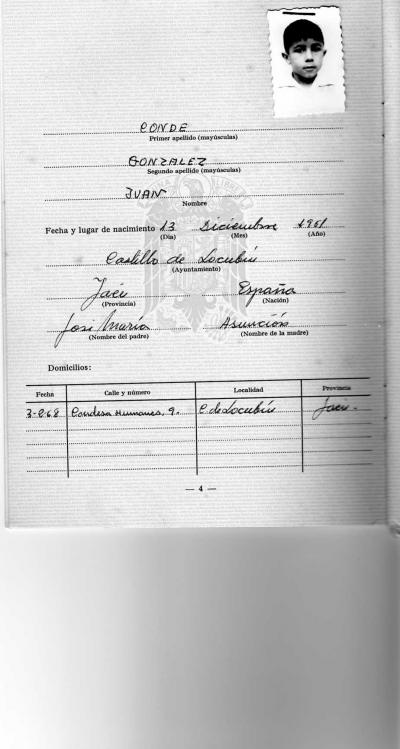 CONDE
Primer apellido (mayúsculas)
GONZALEZ
Segundo apellido (mayúsculas)
JUAN
Nombre
Fecha y lugar de nacimiento 13 Diciembre 1961
(Día) (Mes) (Año)
Castillo de Locubín
(Ayuntamiento)
Jaén España
(Provincia) (Nación)
José María Asunción
(Nombre del padre) (Nombre de la madre)
Domicilios:
Fecha Calle y número Localidad Provincia
Condesa Humanes, 9. C. de Locubín Jaén.
— 4 —